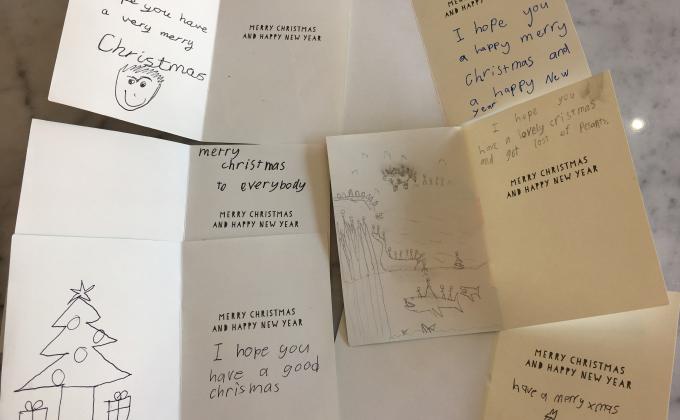 pe you have
a very merry
Christmas
MERRY CHRISTMAS
AND HAPPY NEW YEAR
AND HAPPY
I hope you
a happy merry
Christmas and
a happy New
year
merry
christmas
to everybody
MERRY CHRISTMAS
AND HAPPY NEW YEAR
I hope you
have a lovely cristmas
and get lost of
MERRY CHRISTMAS
AND HAPPY NEW YEAR
MERRY CHRISTMAS
AND HAPPY NEW YEAR
I hope you
have a good
chrismas
MERRY CHRISTMAS
AND HAPPY NEW YEAR
have a merry xmas